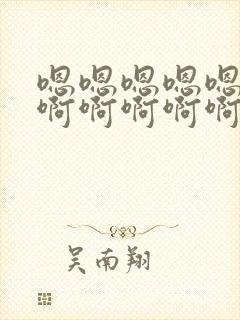 嗯嗯嗯嗯嗯
啊啊啊啊啊
吴南翔